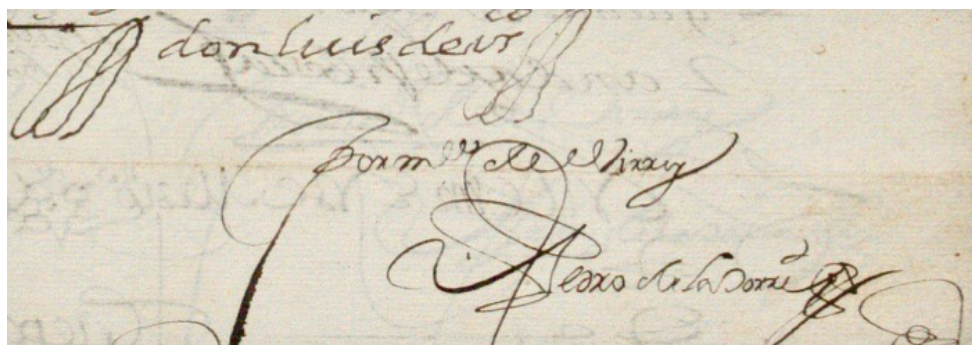 don luis de vco
por mdo del Virrey
Pedro de la Torre